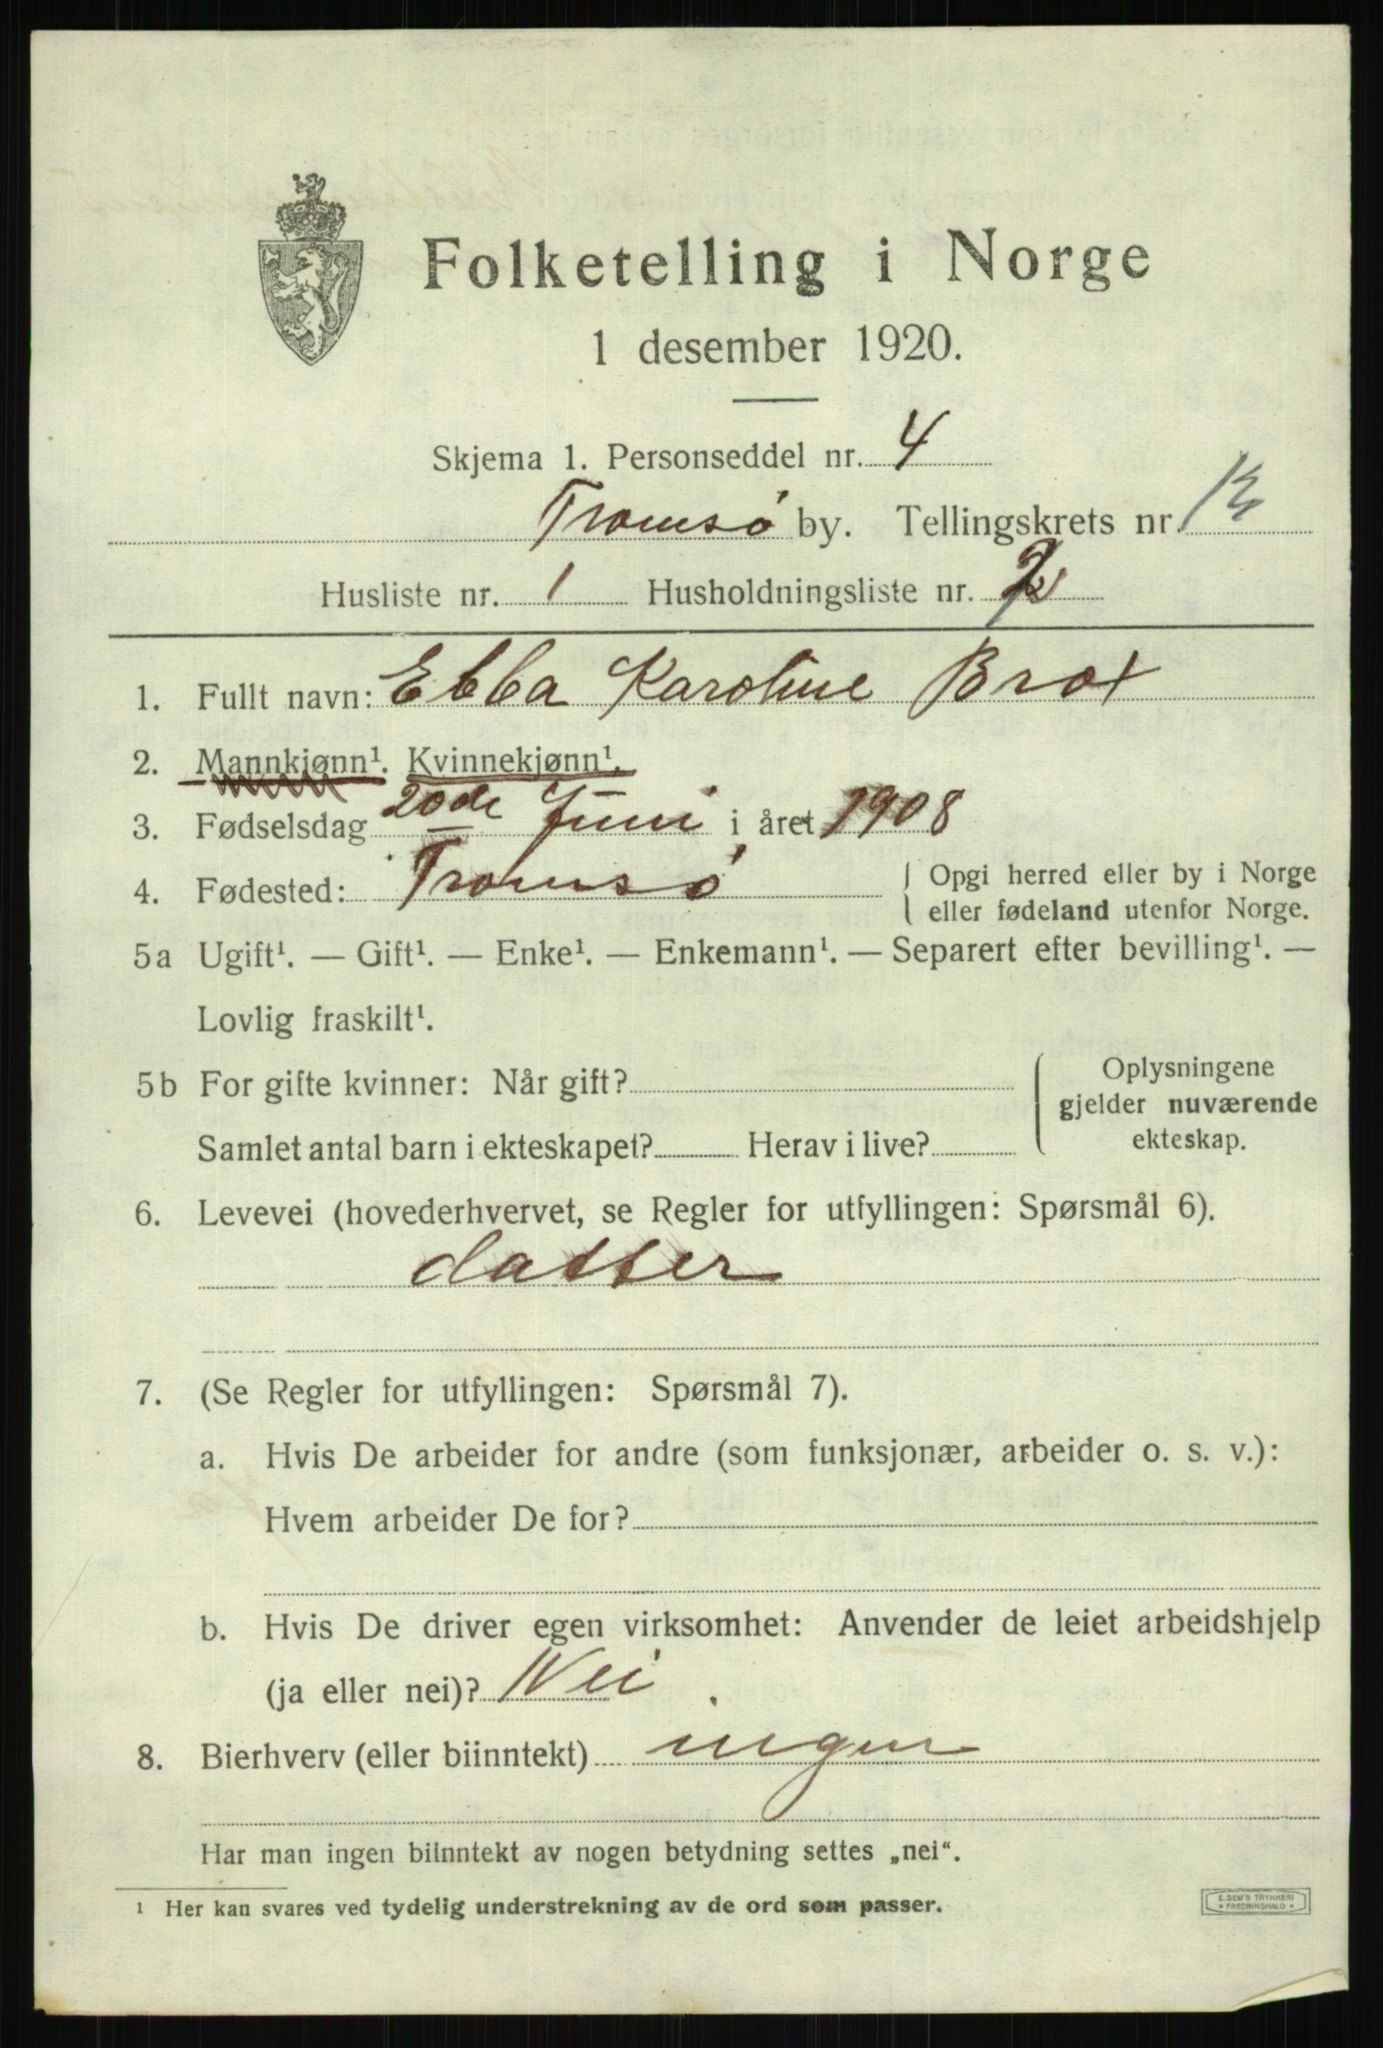 Folketelling i Norge
1 desember 1920.
Skjema 1. Personseddel nr. 4
Tromsø by. Tellingskrets nr. 13
Husliste nr. 1 Husholdningsliste nr. 2
1. Fullt navn: Ebba Karoline Brox
2. Mannkjønn¹. Kvinnekjønn¹.
3. Fødselsdag 20de Juni i året 1908
4. Fødested: Tromsø { Opgi herred eller by i Norge
eller fødeland utenfor Norge.
5a Ugift¹. — Gift¹. — Enke¹. — Enkemann¹. — Separert efter bevilling¹. —
Lovlig fraskilt¹.
5b For gifte kvinner: Når gift? { Oplysningene
gjelder nuværende
Samlet antal barn i ekteskapet? Herav i live? ekteskap.
6. Levevei (hovederhvervet, se Regler for utfyllingen: Spørsmål 6).
datter
7. (Se Regler for utfyllingen: Spørsmål 7).
a. Hvis De arbeider for andre (som funksjonær, arbeider o. s. v.):
Hvem arbeider De for?
b. Hvis De driver egen virksomhet: Anvender de leiet arbeidshjelp
(ja eller nei)? Nei
8. Bierhverv (eller biinntekt) ingen
Har man ingen biinntekt av nogen betydning settes „nei“.
¹ Her kan svares ved tydelig understrekning av de ord som passer.
E. SEM'S TRYKKERI
* FREDRIKSHALD *